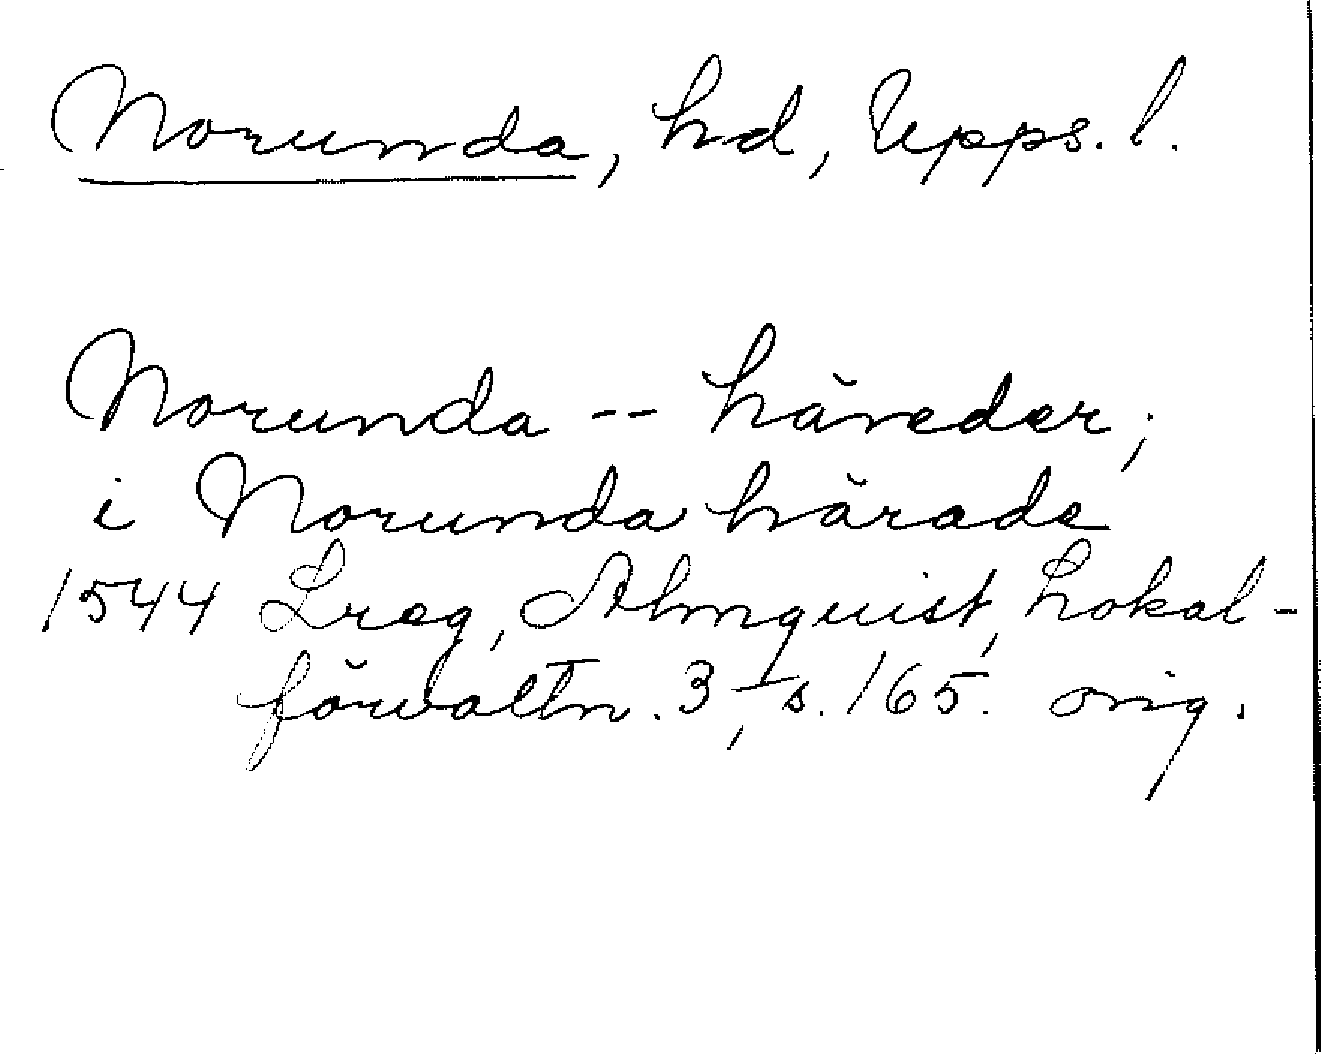 Norunda, hd, Upps. l.
Norunda -- häreder;
i Norunda härade
1544 Lreg, Almquist, Lokal-
förvaltn. 3, s. 165. orig.